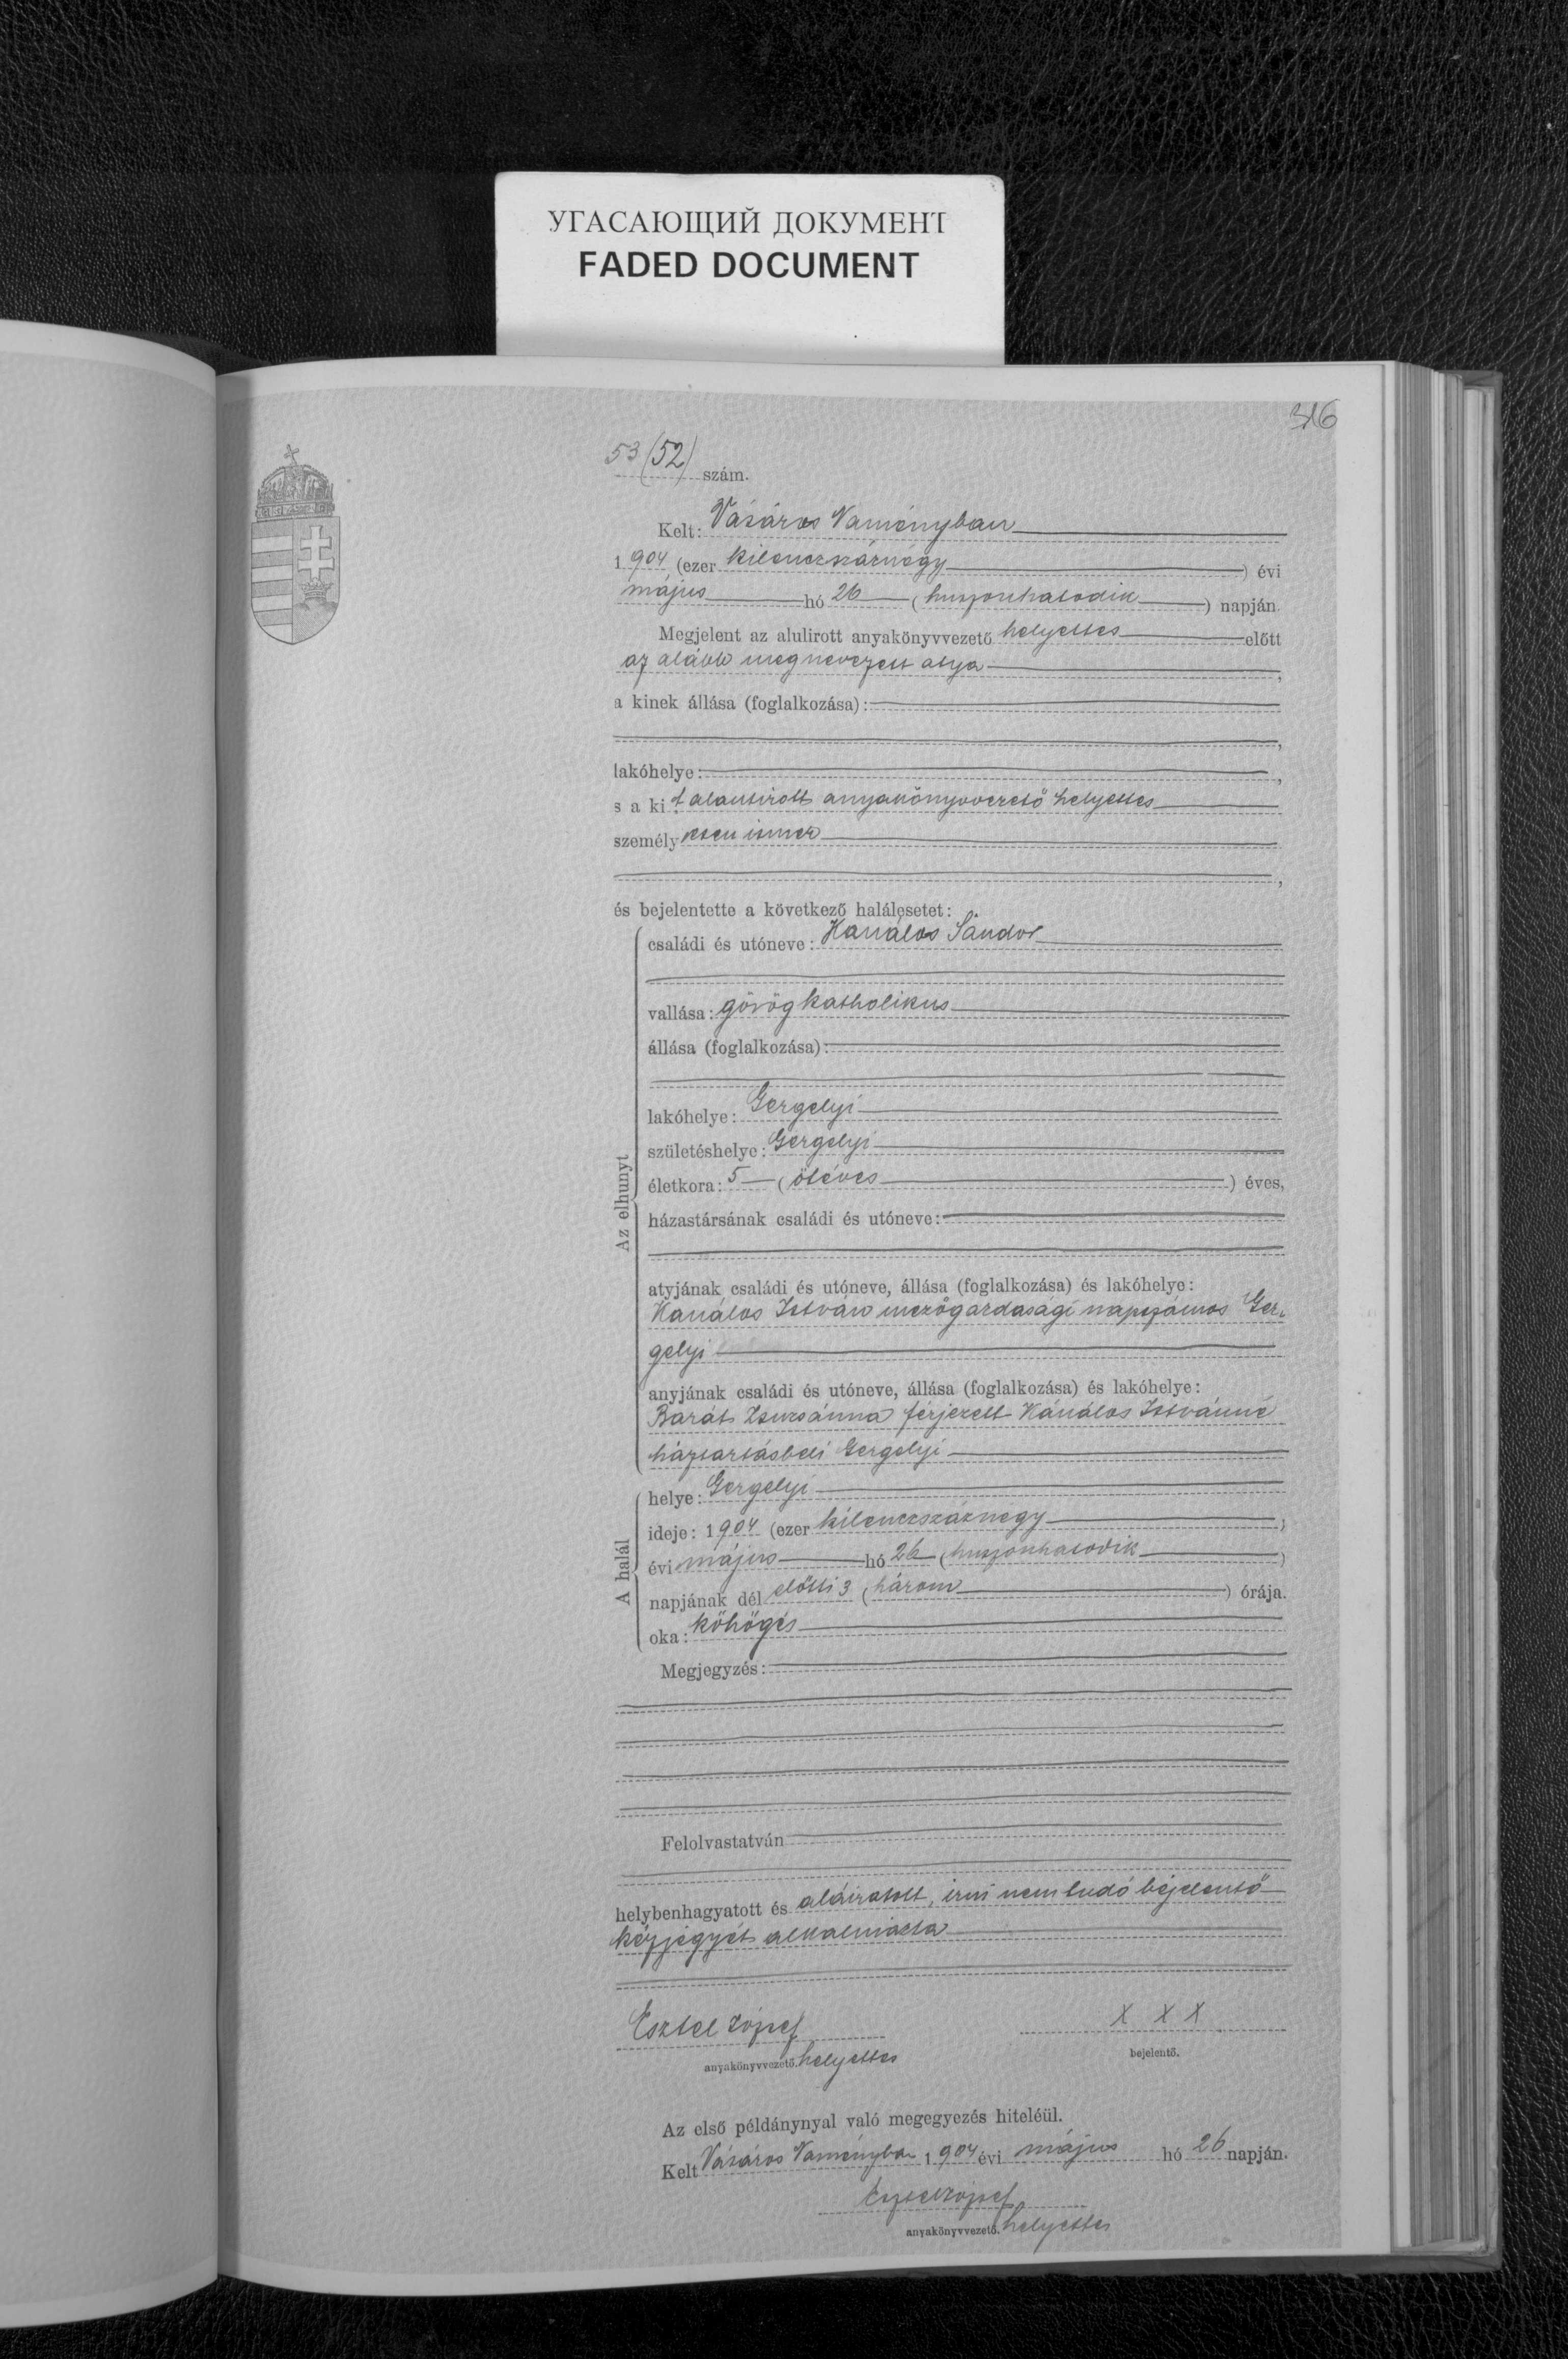 УГАСАЮЩИЙ ДОКУМЕНТ
FADED DOCUMENT
316
53 (52) szám.
Kelt: Vásáros Naményban
1904 (ezer kilenczszáznégy) évi
május hó 26 (huszonhatodik) napján
Megjelent az alulirott anyakönyvvezető helyettes előtt
az alább megnevezett atya,
a kinek állása (foglalkozása):
,
lakóhelye: ,
s a kit alantirott anyakönyvvezető helyettes
személyesen ismer
,
és bejelentette a következő halálesetet:
Az elhunyt
családi és utóneve: Kanálos Sándor
vallása: görög katholikus
állása (foglalkozása):
lakóhelye: Gergelyi
születéshelye: Gergelyi
életkora: 5 (ötéves) éves,
házastársának családi és utóneve:
atyjának családi és utóneve, állása (foglalkozása) és lakóhelye:
Kanálos István mezőgazdasági napszámos Ger-
gelyi
anyjának családi és utóneve, állása (foglalkozása) és lakóhelye:
Barát Zsuzsánna férjezett Kánálos Istvánné
háztartásbeli Gergelyi
A halál
helye: Gergelyi
ideje: 1904 (ezer kilenczszáznégy)
évi május hó 26 (huszonhatodik)
napjának dél előtti 3 (három) órája.
oka: köhögés
Megjegyzés:
Felolvastatván
helybenhagyatott és aláiratott, irni nem tudó bejelentő
kézjegyét alkalmazta
Esztel József X X X
anyakönyvvezető. helyettes bejelentő.
Az első példánynyal való megegyezés hiteléül.
Kelt Vásáros Naményba 1904 évi május hó 26 napján.
Esztel József
anyakönyvvezető. helyettes